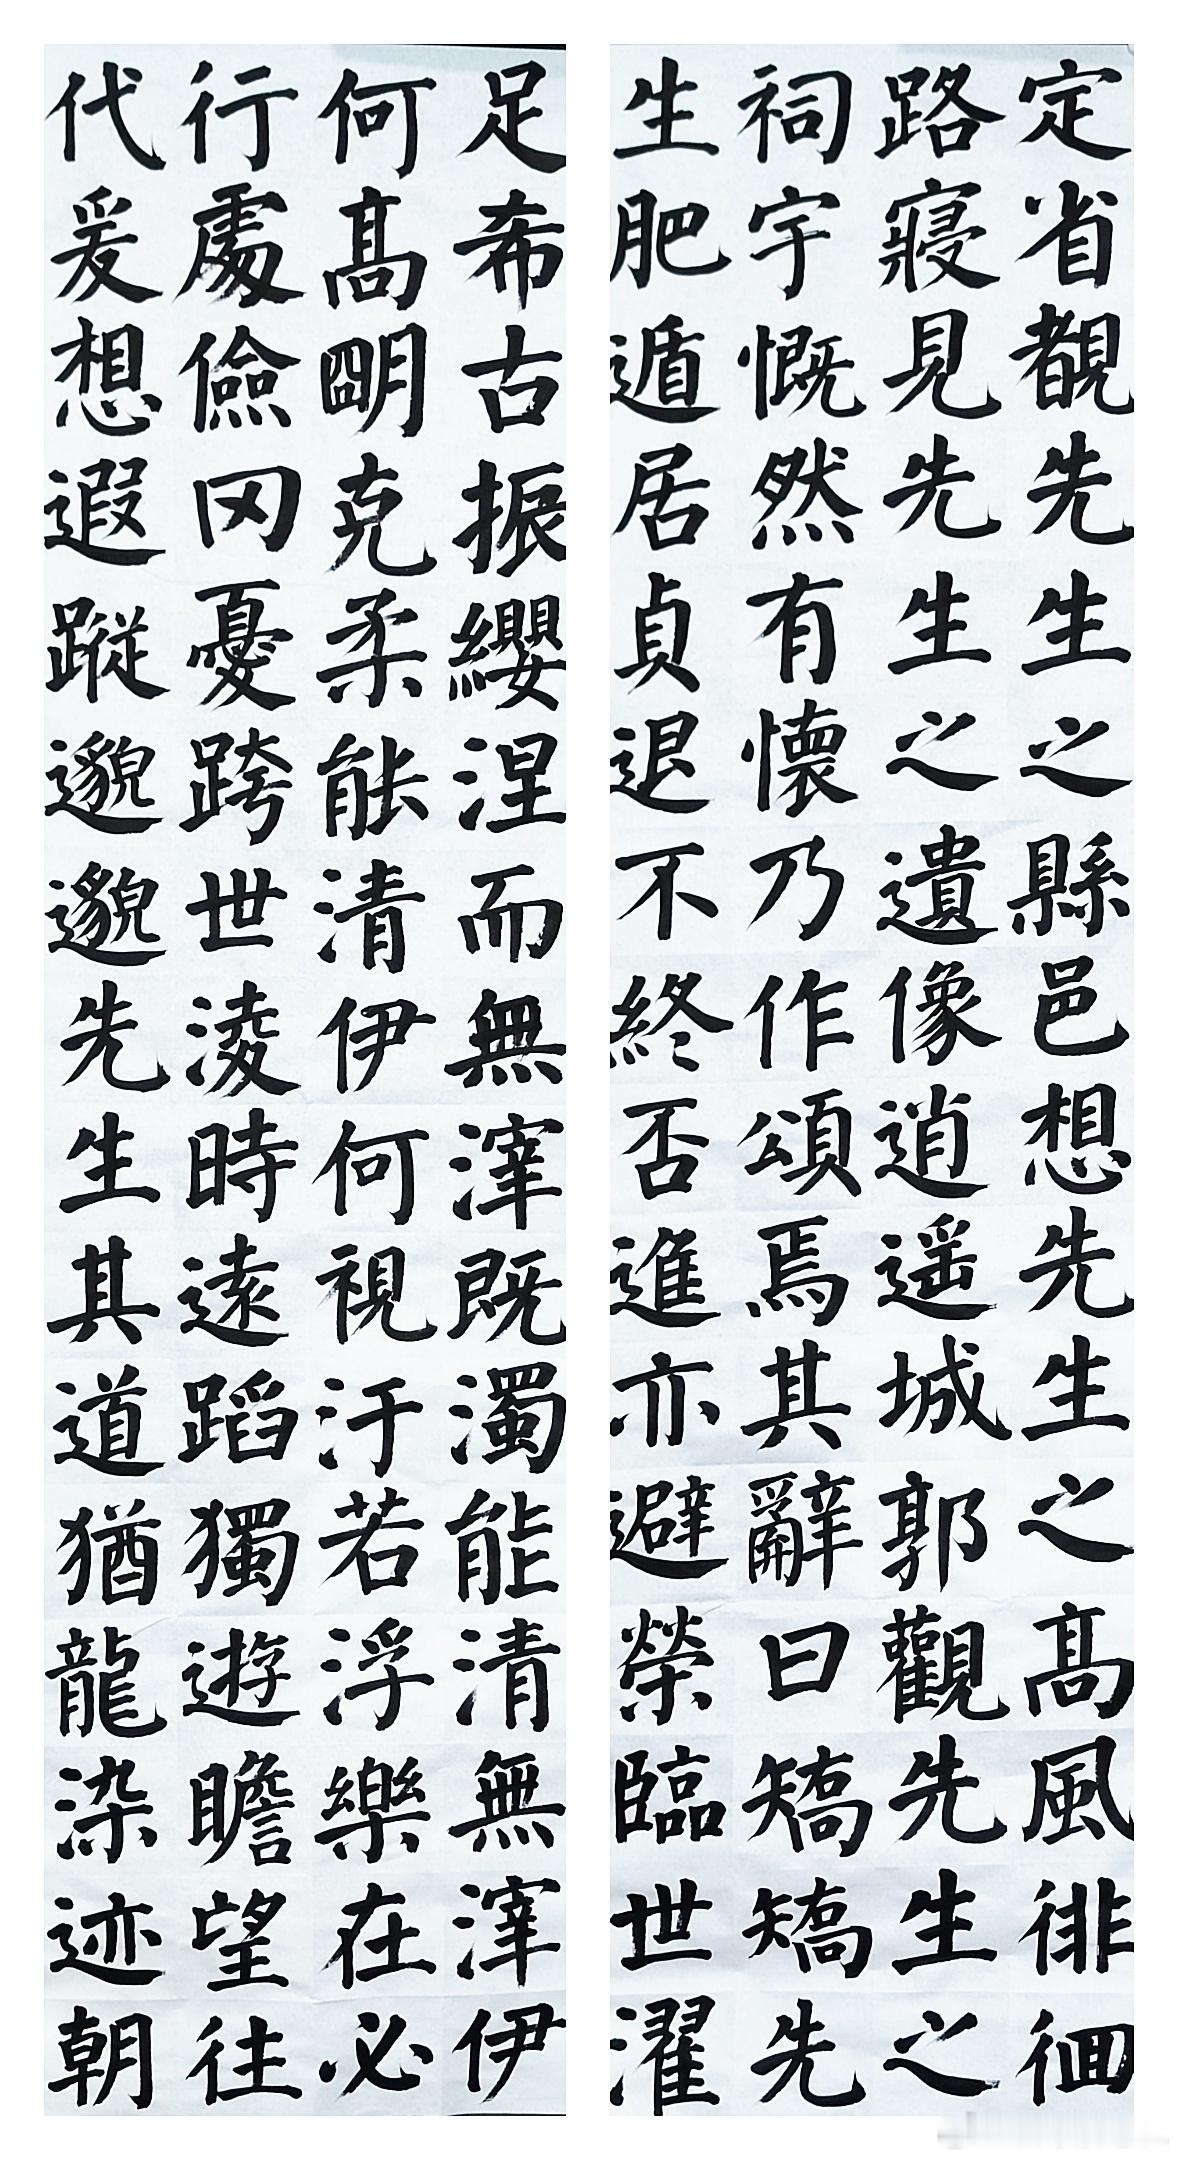 定省覩先生之縣邑想先生之髙風徘徊
路寢見先生之遺像逍遥城郭觀先生之
祠宇慨然有懷乃作頌焉其辭曰矯矯先
生肥遁居貞退不終否進亦避榮臨世濯
足希古振纓涅而無滓既濁能清無滓伊
何髙明克柔能清伊何視汙若浮樂在必
行處儉冈憂跨世淩時遠蹈獨遊瞻望往
代爰想遐蹤邈邈先生其道猶龍染迹朝